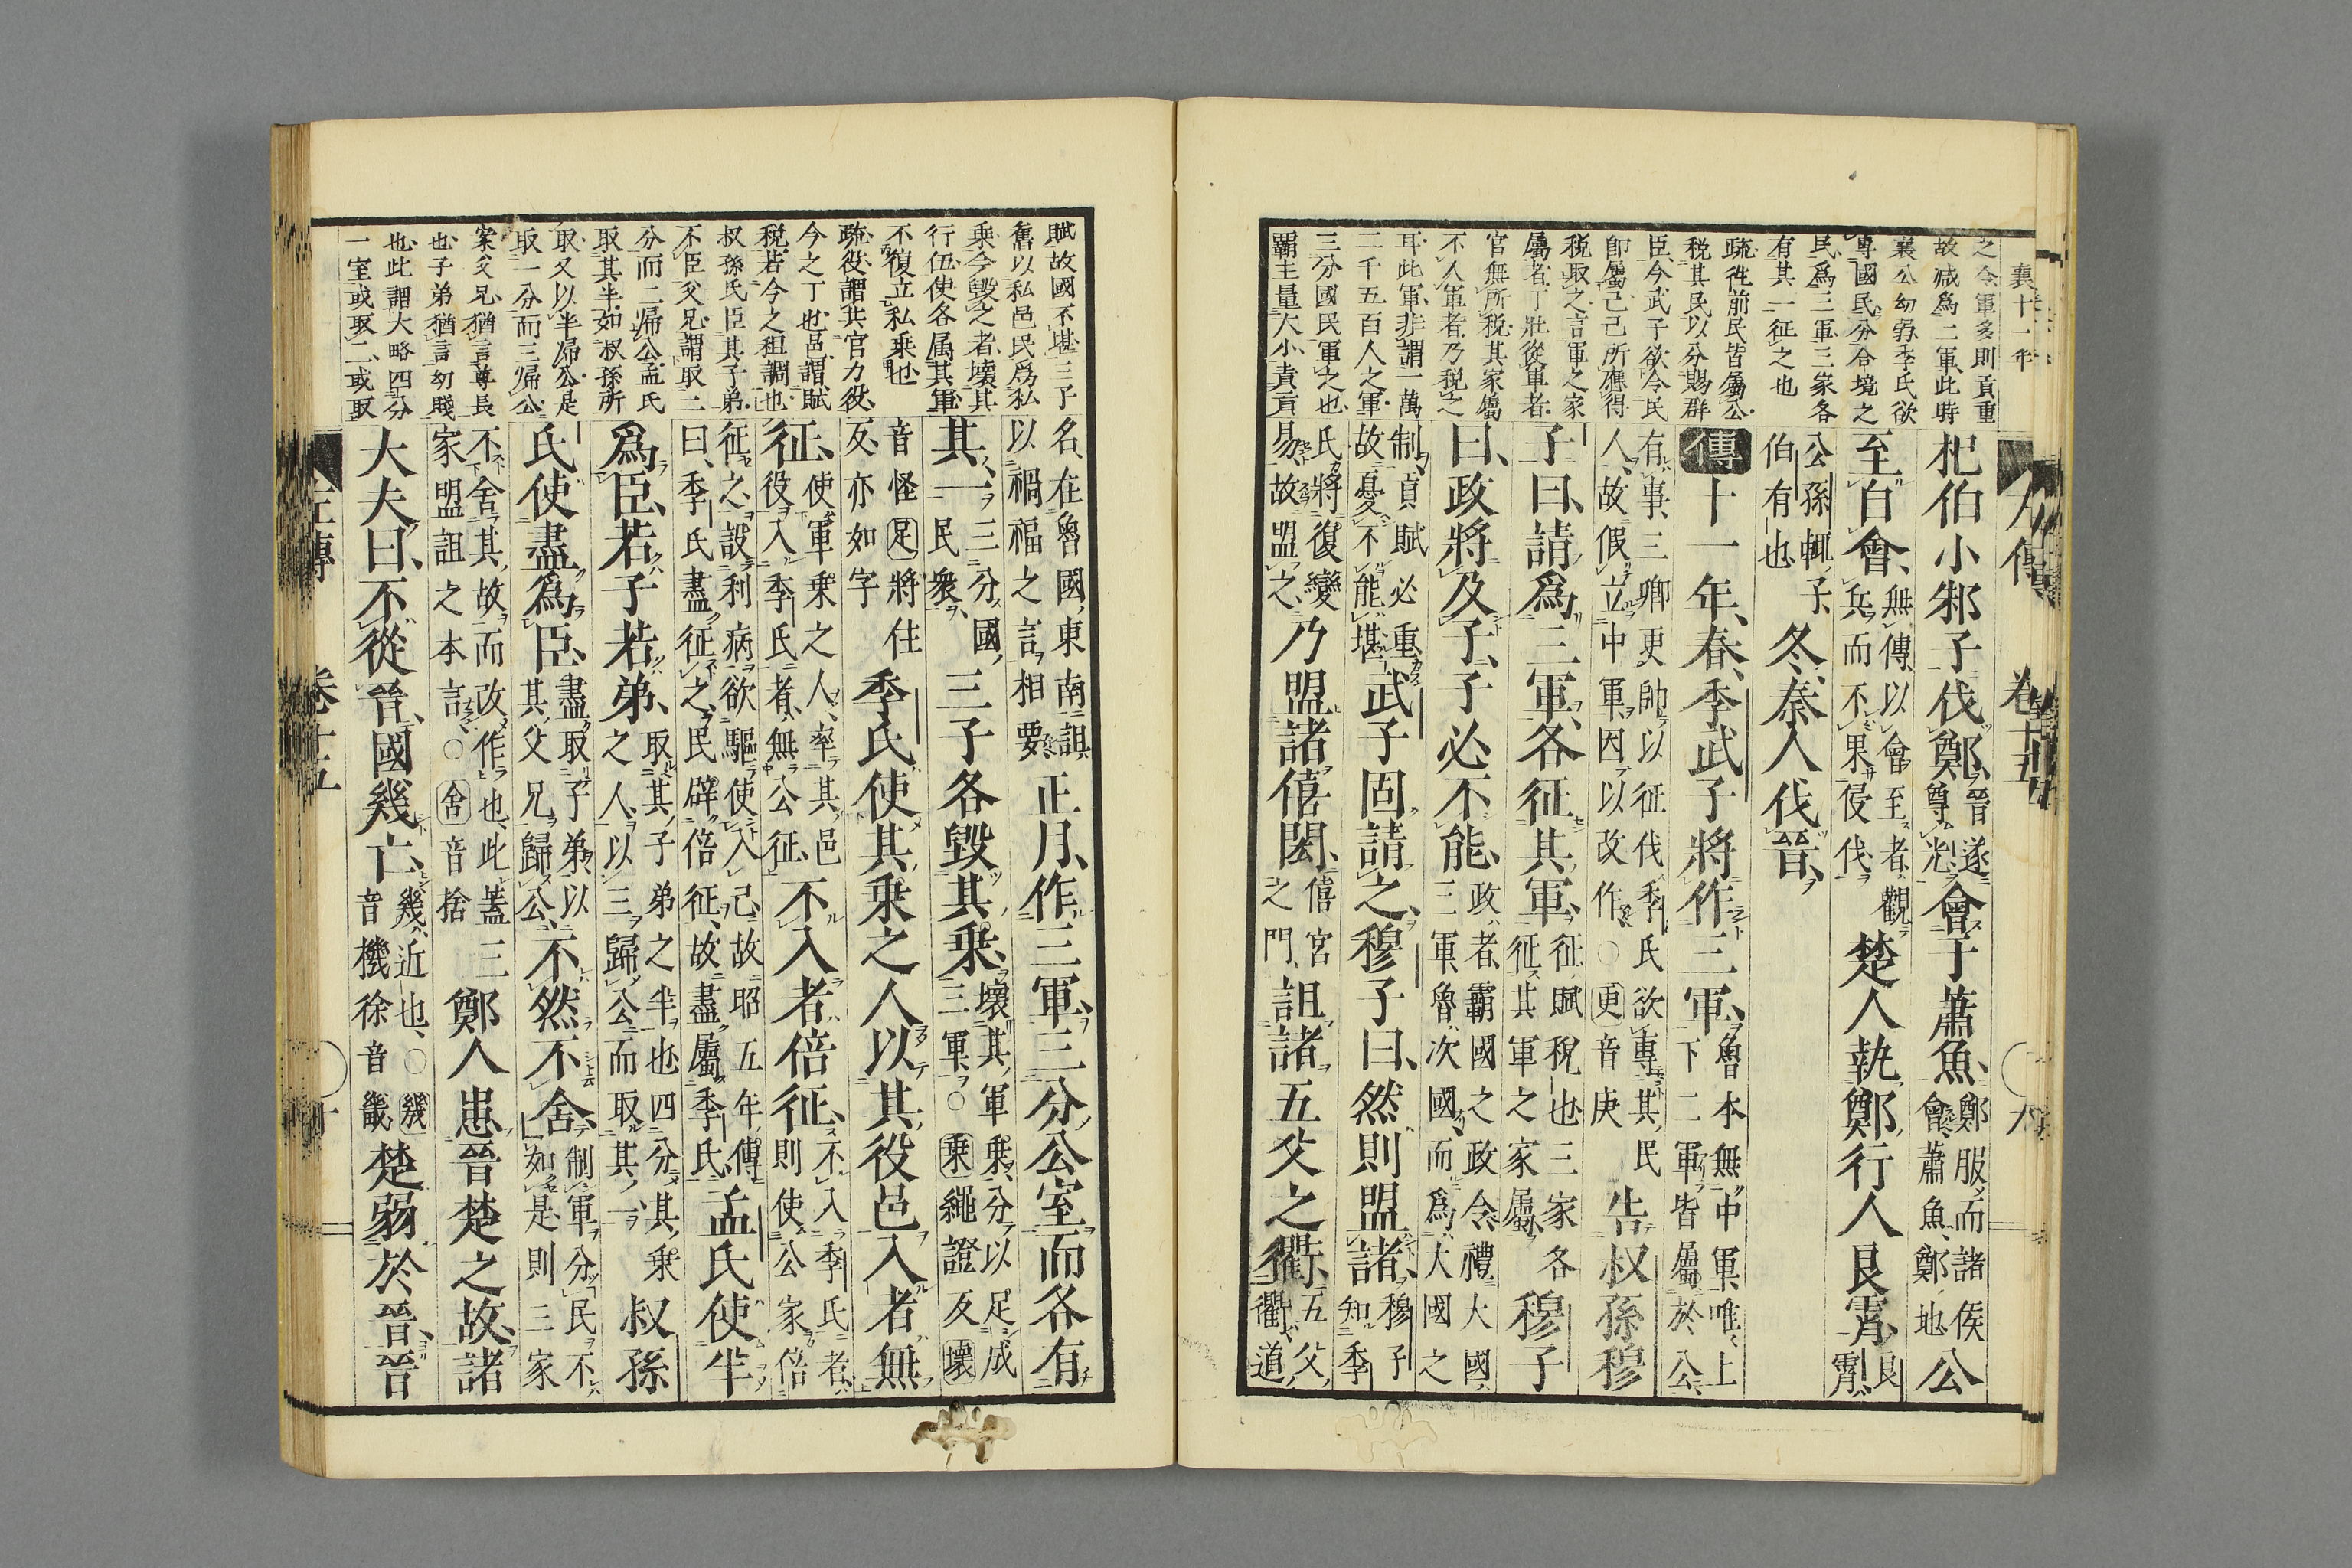 左傳 卷十五
襄十一年
之今軍多則貢重
故減爲二軍此時
襄公幼弱季氏欲
專國民分合境之
民爲三軍三家各
有其一征之也
疏往前民皆屬公
税其民以分賜群
臣今武子欲令民
即屬己己所應得
税取之言軍之家
屬者丁壯從軍者
官無所税其家屬
不入軍者乃税之
耳此軍非謂一萬
二千五百人之軍
三分國民軍之也
霸主量大小責貢
杞伯小邾子伐鄭、晉遂尊光會于蕭魚、鄭服而諸侯會蕭魚、鄭地公
至自會、無傳、以會至者、觀兵而不果侵伐楚人執鄭行人良霄、良霄
公孫輒子、伯有也冬、秦人伐晉、
傳十一年、春、季武子將作三軍、魯本無中軍、唯上下二軍皆屬於公
有事、三卿更帥以征伐季氏欲專其民人、故假立中軍因以改作○更音庚告叔孫穆
子曰、請爲三軍、各征其軍、征賦稅也三家各征其軍之家屬、穆子
曰、政將及子、子必不能、政者、霸國之政令、禮大國三軍、魯次國、而爲大國之
制、貢賦必重、故憂不能堪武子固請之、穆子曰、然則盟諸、穆子知季
氏將復變易、故盟之、乃盟諸僖閎、僖宮之門、詛諸五父之衢、五父衢道
賦故國不堪三子
舊以私邑民爲私
乘今毀之者壞其
行伍使各属其軍
不復立私乘也
疏役謂共官力役
今之丁也邑謂賦
税若今之租調也
叔孫氏臣其子弟
不臣父兄謂取二
分而二歸公孟氏
取其半如叔孫所
取又以半歸公是
取一分而三歸公
案父兄猶言尊長
也子弟猶言幼賤
也此謂大略四分
一室或取二或取
名、在魯國東南詛以禍福之言相要正月、作三軍、三分公室而各有
其一、三分國民衆、三子各毀其乘、壞其軍乘、分以足成三軍○乘繩證反壞
音怪足將住反、亦如字季氏使其乘之人以其役邑入者、無
征、使軍乘之人、率其邑役入季氏者、無公征、不入者倍征、不入季氏者、則使公家倍
征之、設利病欲驅使入己、故昭五年傳曰、季氏盡征之、民辟倍征、故盡屬季氏、孟氏使半
爲臣、若子若弟、取其子弟之半也四分其乘之人、以三歸公而取其一叔孫
氏使盡爲臣、盡取子弟、以其父兄歸公、不然不舍、制軍分民不如是則三家
不舍其故而改作也、此蓋三家盟詛之本言○舍音捨鄭人患晉楚之故、諸
大夫曰、不從晉、國幾亡、幾近也、○幾音機徐音畿楚弱於晉、晉
左傳 卷十五